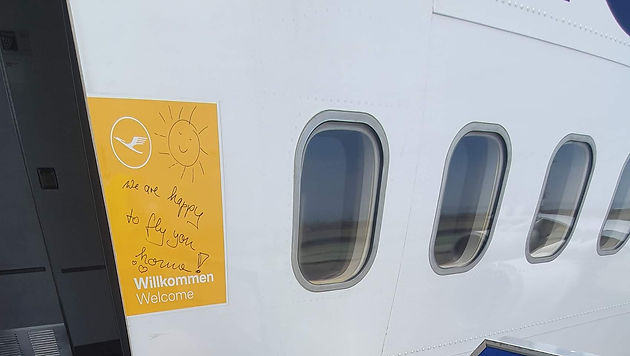 we are happy
to fly you
home!
Willkommen
Welcome